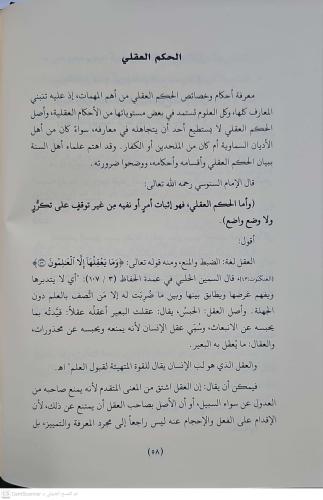 الحكم العقلي
معرفة أحكام وخصائص الحكم العقلي من أهم المهمات، إذ عليه تنبني
المعارف كلها، وكل العلوم تستمد في بعض مستوياتها من الأحكام العقلية، وأصل
الحكم العقلي لا يستطيع أحد أن يتجاهله في معارفه، سواءً كان من أهل
الأديان السماوية أم كان من الملحدين أو الكفار. وقد اهتم علماء أهل السنة
ببيان الحكم العقلي وأقسامه وأحكامه، ووضحوا ضرورته.
قال الإمام السنوسي رحمه الله تعالى:
(وأما الحكم العقلي، فهو إثبات أمرٍ أو نفيه مِن غير توقفٍ على تكرُّرٍ
ولا وضع واضع).
أقول:
العقل لغة: الضبط والمنع، ومنه قوله تعالى: ﴿وَمَا يَعْقِلُهَا إِلَّا الْعَالِمُونَ﴾
[العنكبوت:٤٣]، قال السمين الحلبي في عمدة الحفاظ (٣ / ١٠٧): "أي لا يتدبرها
ويفهم غرضها ويطابق بينها وبين ما ضُربَت له إلا مَن اتَّصف بالعلم دون
الجهلة. وأصل العقل: الحبسُ، يقال: عقلت البعير أَعْقله عقلاً: قيَّدتُه بما
يحبسه عن الانبعاث، وسُمِّي عقل الإنسان لأنه يمنعه ويحبسه عن محذورات،
والعقال: ما يعقل به البعير.
والعقل الذي هو لب الإنسان يقال للقوة المتهيئة لقبول العلم" اهـ.
فيمكن أن يقال: إن العقل اشتق من المعنى المتقدم لأنه يمنع صاحبه من
العدول عن سواء السبيل، أو أن الأصل بصاحب العقل أن يمتنع عن ذلك، لأن
الإقدام على الفعل والإحجام عنه ليس راجعاً إلى مجرد المعرفة والتمييز، بل
(٥٨)
CamScanner